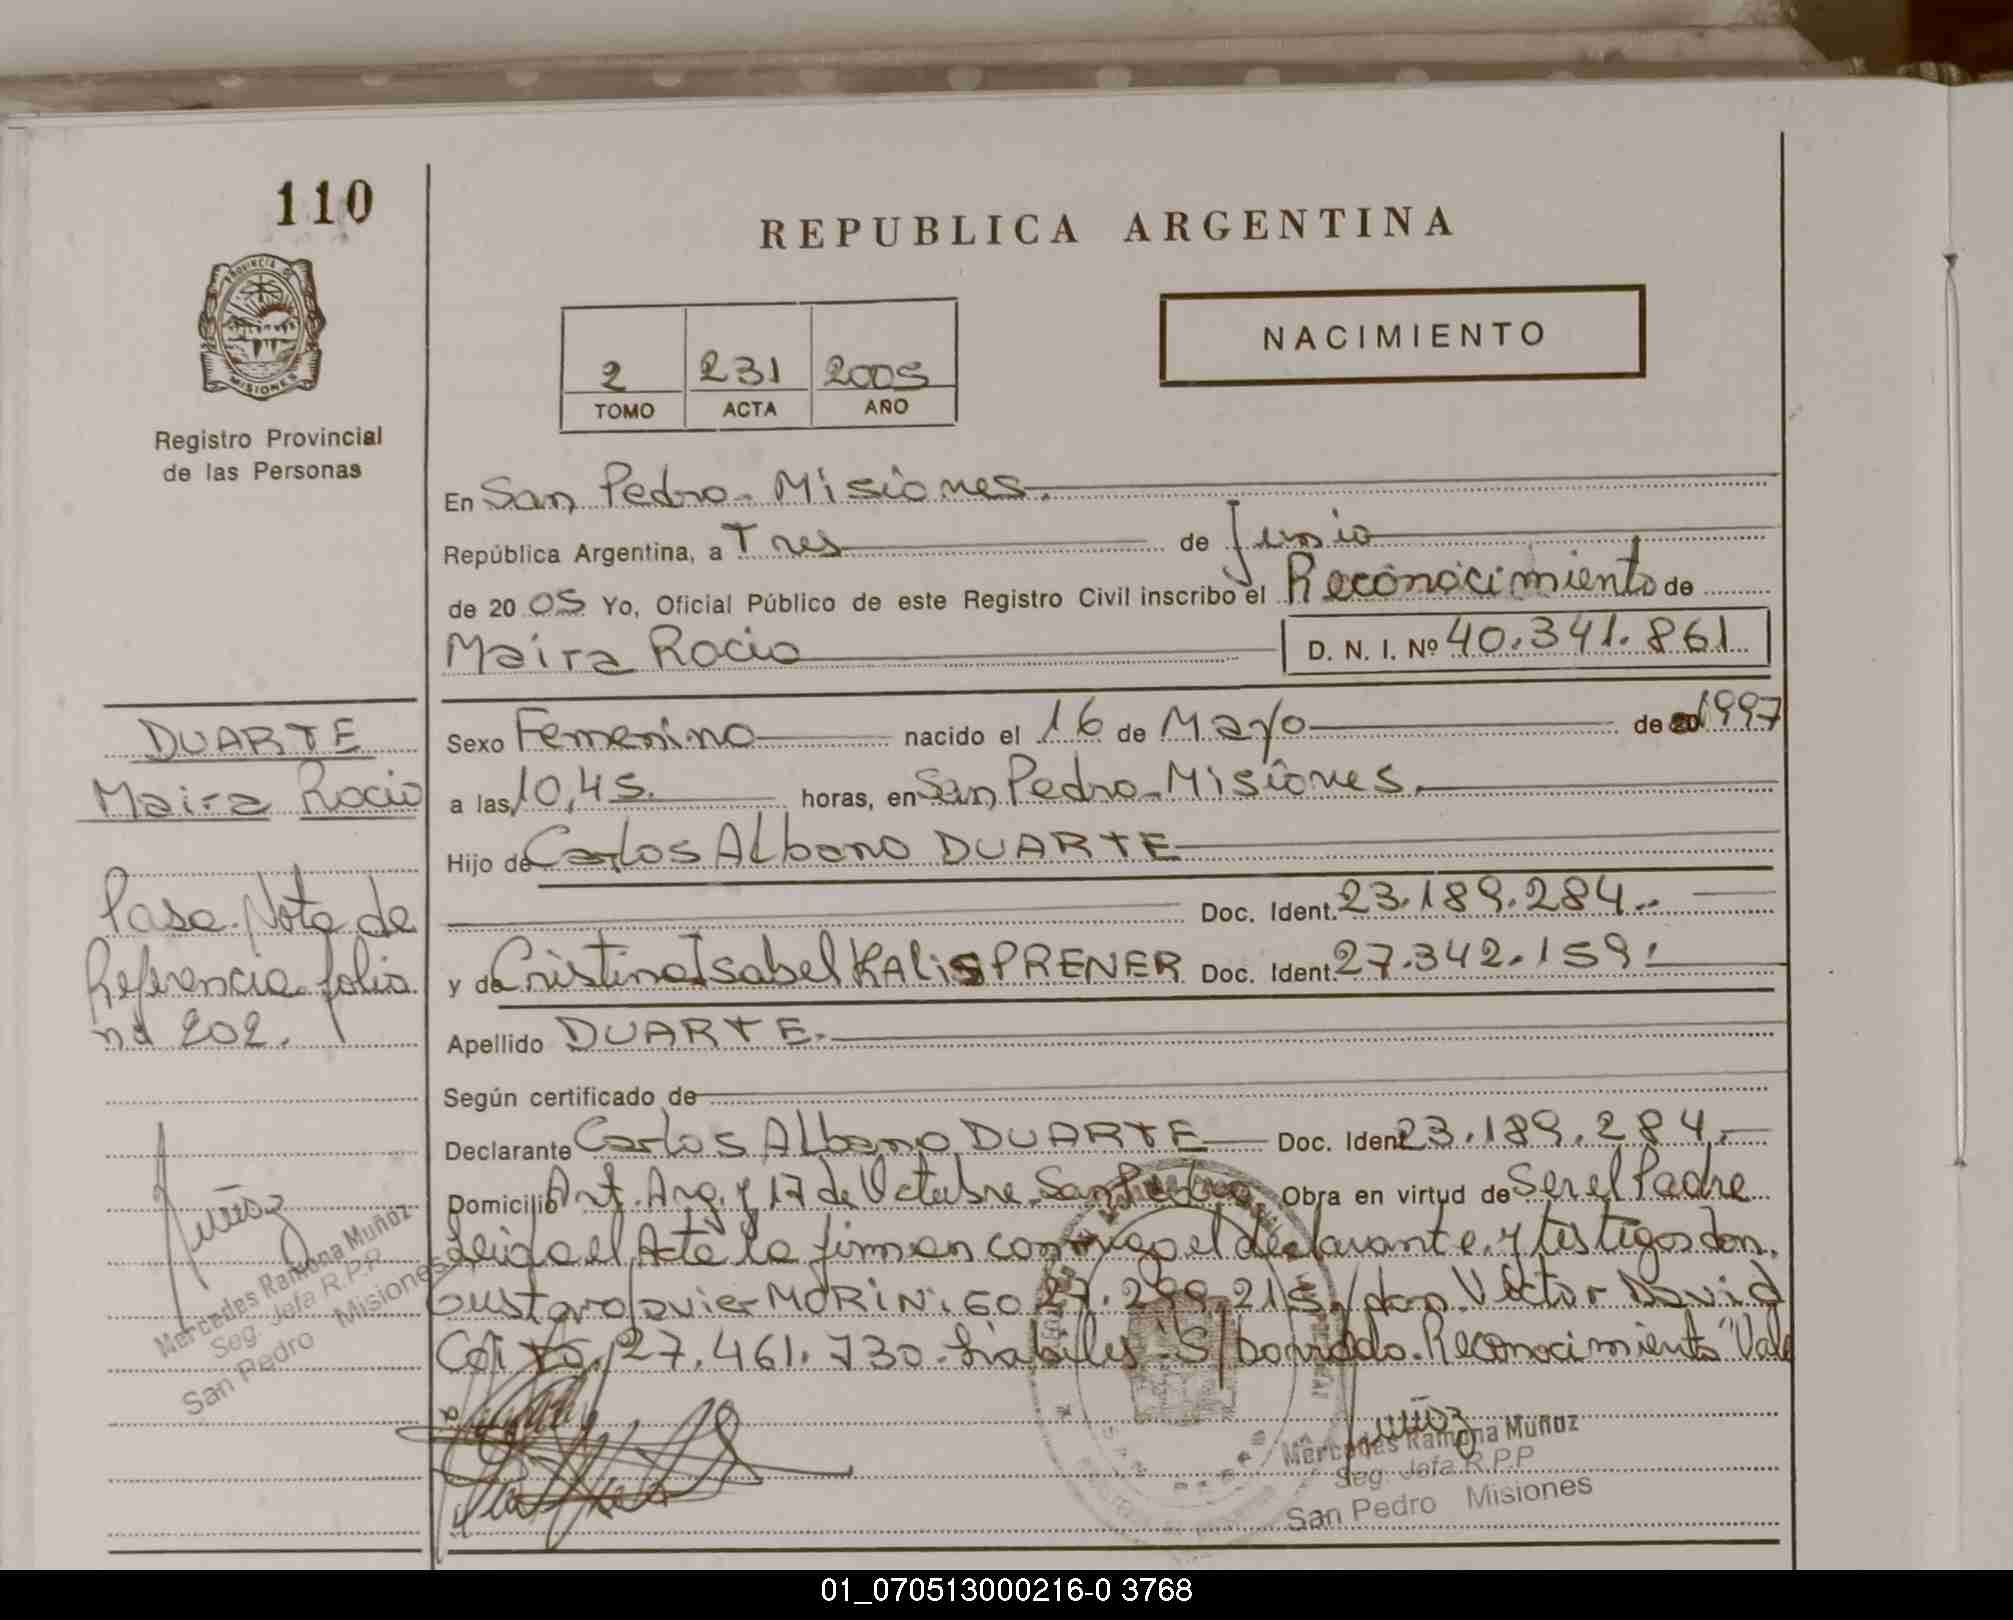 110
REPUBLICA ARGENTINA
PROVINCIA DE
MISIONES
NACIMIENTO
2 231 2005
TOMO ACTA AÑO
Registro Provincial
de las Personas
En San Pedro - Misiones.
República Argentina, a Tres de Junio
de 20 05 Yo, Oficial Público de este Registro Civil inscribo el Reconocimiento de
Maira Rocio D. N. I. Nº 40.341.861
DUARTE
Maira Rocio
Pase Nota de
Referencia folio
nº 202.
Sexo Femenino nacido el 16 de Mayo de 1997
a las 10,45. horas, en San Pedro - Misiones.
Hijo de Carlos Albano DUARTE
Doc. Ident. 23.189.284.-
y de Cristina Isabel KALISPRENER Doc. Ident. 27.342.159.
Apellido DUARTE.
Según certificado de
Declarante Carlos Albano DUARTE Doc. Ident 23.189.284.-
Domicilio Ant. Arg. y 17 de Octubre San Pedro Obra en virtud de Ser el Padre
Leida el Acta la firman conmigo el declarante y testigos don
Gustavo Javier MORINIGO 27.299.215 y don Victor David
27.461.730. hábiles. S/borrado. Reconocimiento "Vale
Muñoz
Mercedes Ramona Muñoz
Seg. Jefa R.P.P
San Pedro Misiones
Muñoz
Mercedes Ramona Muñoz
Seg. Jefa R.P.P
San Pedro Misiones
01_070513000216-0 3768